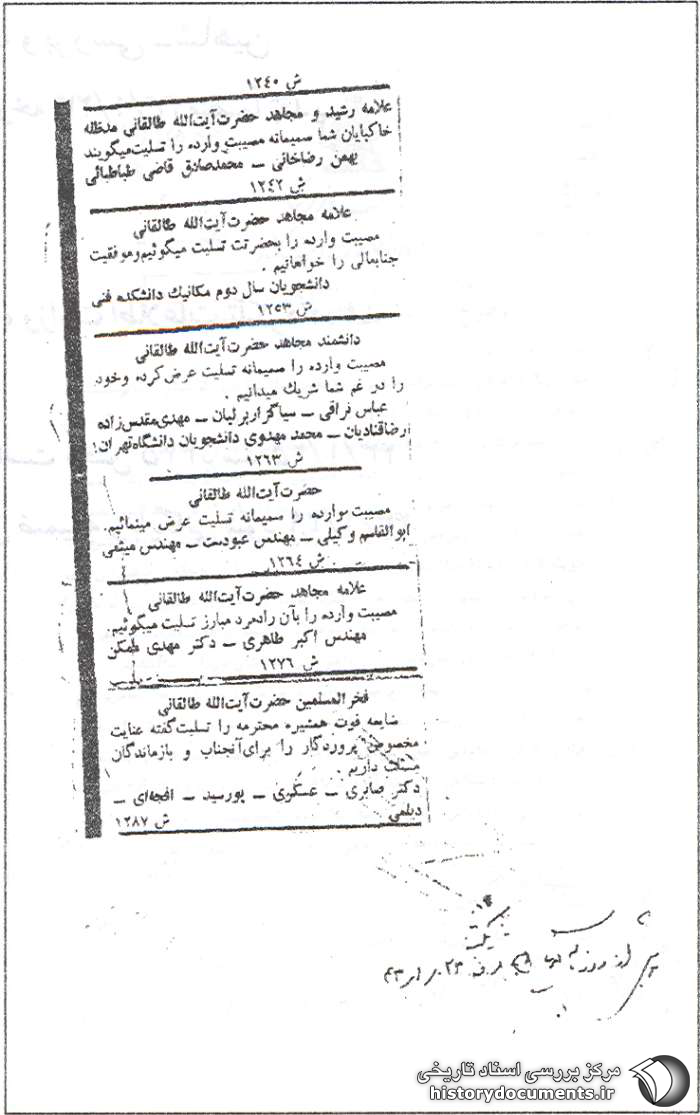 ش ۱۲۴۰
علامه رشید و مجاهد حضرت‌آیت‌الله طالقانی مدظله
خاکپایان شما صمیمانه مصیبت وارده را تسلیت‌میگویند
بهمن رضاخانی ــ محمدصادق قاضی طباطبائی
ش ۱۲۴۲
علامه مجاهد حضرت‌آیت‌الله طالقانی
مصیبت وارده را بحضرتت تسلیت میگوئیم‌وموفقیت
جنابعالی را خواهانیم .
دانشجویان سال دوم مکانیک دانشکده فنی
ش ۱۲۵۳
دانشمند مجاهد حضرت‌آیت‌الله طالقانی
مصیبت وارده را صمیمانه تسلیت عرض‌کرده وخود
را در غم شما شریک میدانیم .
عباس نراقی ــ ــ مهدی‌مقدس‌زاده
رضاقنادیان ــ محمد مهدوی دانشجویان دانشگاه‌تهران
ش ۱۲۶۳
حضرت‌آیت‌الله طالقانی
مصیبت وارده را صمیمانه تسلیت عرض مینمائیم.
ابوالقاسم وکیلی ــ مهندس عبودیت ــ مهندس میثمی
ش ۱۲۶۴
علامه مجاهد حضرت‌آیت‌الله طالقانی
مصیبت وارده را بآن رادمرد مبارز تسلیت میگوئیم.
مهندس اکبر طاهری ــ دکتر مهدی ممکن
ش ۱۲۷۶
فخرالمسلمین حضرت‌آیت‌الله طالقانی
ضایعه فوت همشیره محترمه را تسلیت‌گفته عنایت
مخصوص پروردگار را برای‌آنجناب و بازماندگان
مسئلت داریم .
دکتر صابری ــ عسکری ــ پورسید ــ افجه‌ای ــ
دیلمی ش ۱۲۸۷
مرکز بررسی اسناد تاریخی
historydocuments.ir